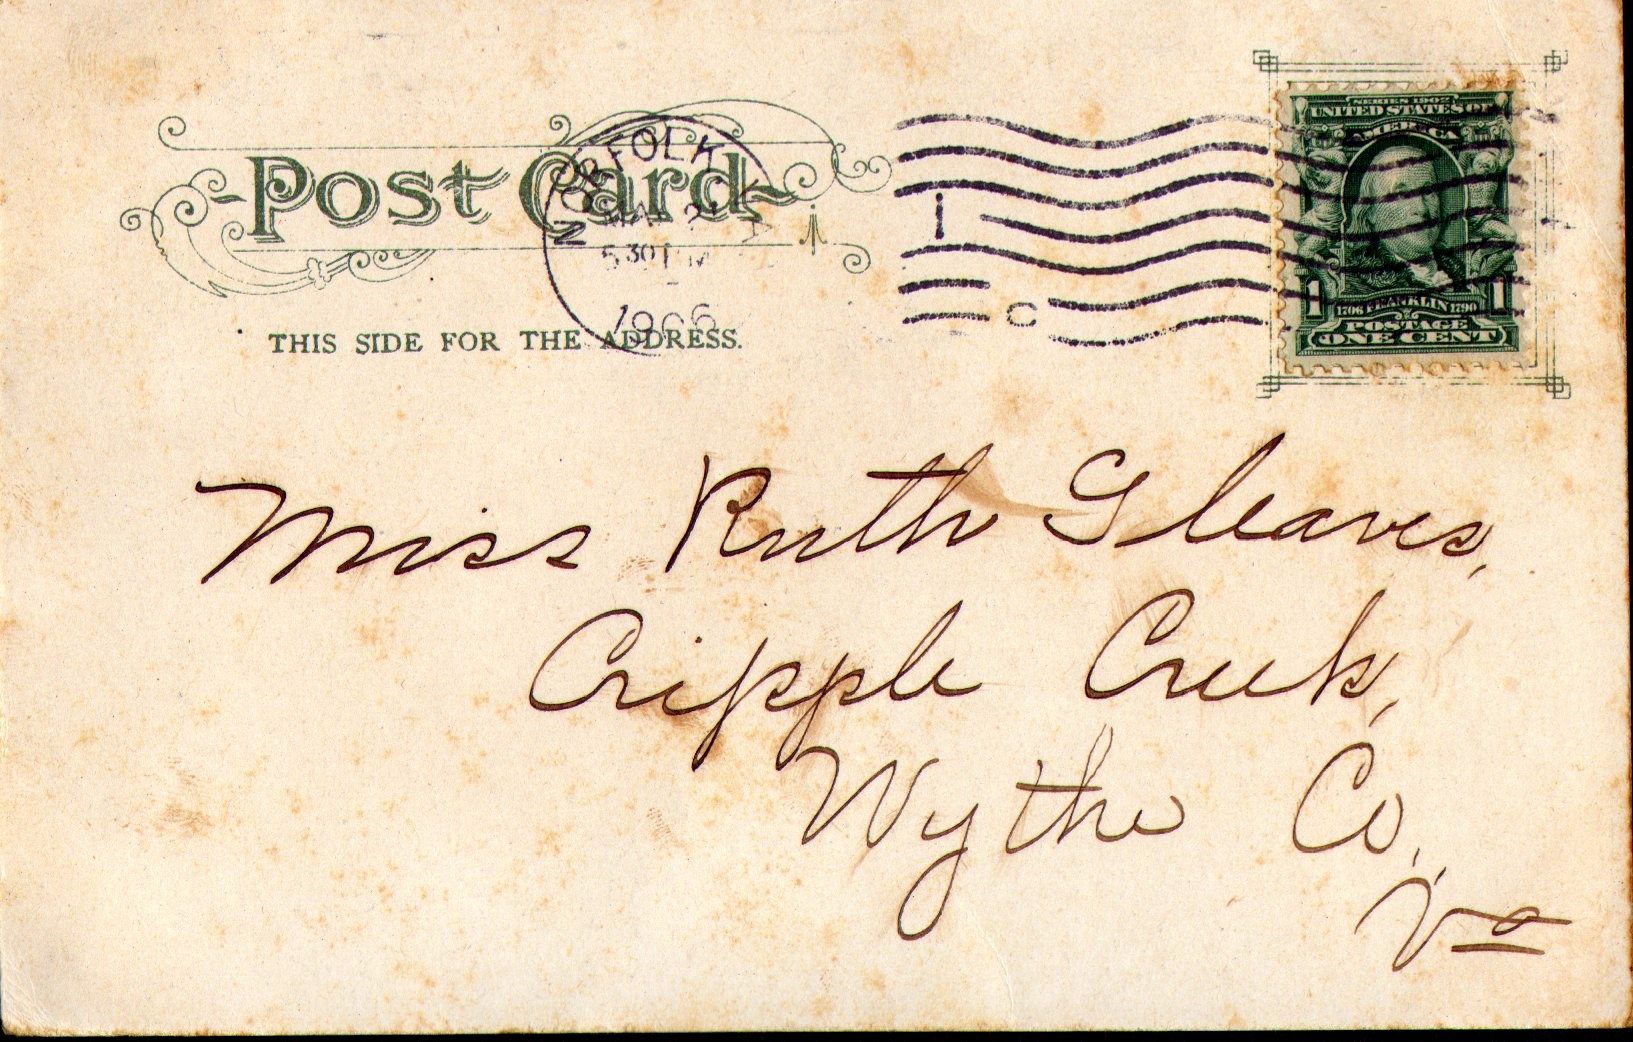 Post Card
NORFOLK VA
MAY 21
5 30 PM
1906
THIS SIDE FOR THE ADDRESS.
1
C
SERIES 1902
UNITED STATES OF
AMERICA
1 1706 FRANKLIN 1790 1
POSTAGE
ONE CENT
Miss Ruth Gleaves,
Cripple Creek,
Wythe Co.,
Va